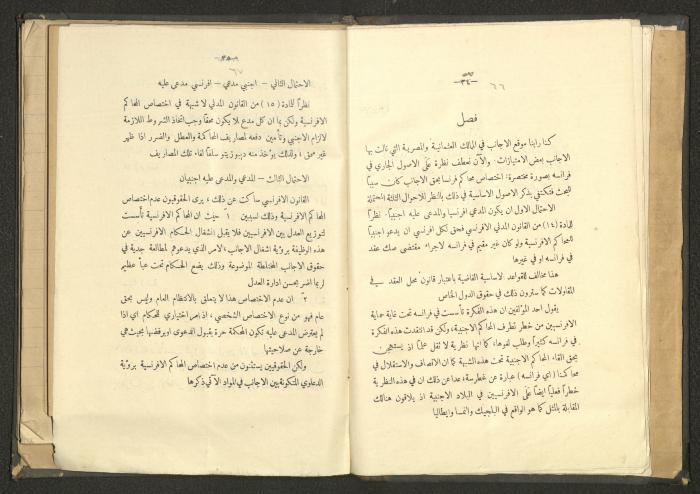 ٦٦
فصل
كنا رأينا موقع الاجانب في الممالك العثمانية والمصرية التي نالت بها
الاجانب بعض الامتيازات . والآن نعطف نظرة على الاصول الجاري في
فرانسه بصورة مختصرة : اختصاص محاكم فرانسا بحق الاجانب كان سبباً
للبحث فنكتفي بذكر الاصول الاساسية في ذلك بالنظر للاحوال الثلاثة المحتملة
الاحتمال الاول ان يكون المدعي افرنسياً والمدعى عليه اجنبياً . نظراً
للمادة (١٤) من القانون المدني الافرنسي فحق لكل افرنسي ان يدعو اجنبياً
للمحاكم الافرنسية ولو كان غير مقيم في فرانسه لاجراء مقتضى صك عقد
في فرانسه او في غيرها
هذا مخالف للقواعد الاساسية القاضية باعتبار قانون محل العقد في
المقاولات كما سترون ذلك في حقوق الدول الخاص
يقول احد المؤلفين ان هذه الفكرة تأسست في فرانسه تحت غاية حماية
الافرنسيين من خطر تطرف المحاكم الاجنبية ، ولكن قد انتقدت هذه الفكرة
في فرانسه كثيراً وطلب لغوها ، كما انها نظرية لا تقبل عملاً اذ يستهجن
بحق القاء المحاكم الاجنبية تحت هذه الشبهة كما ان الانصاف والاستقلال في
محاكمنا (اي فرانسه) عبارة عن غطرسة ، عدا عن ذلك ان في هذه النظرية
خطراً فعلياً ايضاً على الافرنسيين في البلاد الاجنبية اذ يلاقون هنالك
المقابلة بالمثل كما هو الواقع في البلجيك والنمسا وايطاليا
٦٧
الاحتمال الثاني – اجنبي مدعي – افرنسي مدعى عليه
نظراً للمادة (١٥) من القانون المدني لا شبهة في اختصاص المحاكم
الافرنسية ولكن بما ان كل مدع لا يكون محقاً وجب اتخاذ الشروط اللازمة
لالزام الاجنبي وتأمين دفعه لمصاريف المحاكمة والعطل والضرر اذا ظهر
غير محق ، ولذلك يؤخذ منه ديبوزيتو سلفاً لقاء تلك المصاريف
الاحتمال الثالث – المدعي والمدعى عليه اجنبيان
القانون الافرنسي ساكت عن ذلك ، يرى الحقوقيون عدم اختصاص
المحاكم الافرنسية وذلك لسببين ١ً حيث ان المحاكم الافرنسية تأسست
لتوزيع العدل بين الافرنسيين فلا يقبل انشغال الحكام الافرنسيين عن
هذه الوظيفة برؤية اشغال الاجانب ، الامر الذي يدعوهم لمطالعة جدية في
حقوق الاجانب المختلطة الموضوعة وذلك يضع الحكام تحت عبأ عظيم
لربما اضر بحسن ادارة العدل
٢ً ان عدم الاختصاص هذا لا يتعلق بالانتظام العام وليس بحق
عام فهو من نوع الاختصاص الشخصي ، اذاً امر اختياري للحكام اي اذا
لم يعترض المدعى عليه تكون المحكمة حرة بقبول الدعوى او برفضها بحيث هي
خارجة عن صلاحيتها
ولكن الحقوقيين يستثنون من عدم اختصاص المحاكم الافرنسية برؤية
الدعاوي المتكونة بين الاجانب في المواد الآتي ذكرها